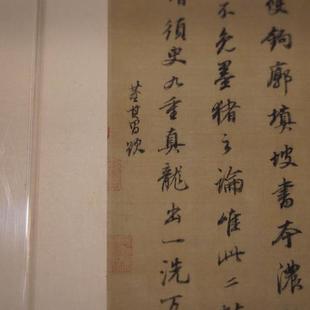 使鉤廓填坡書本濃
不免墨豬之論唯此二
須臾九重真龍出一洗万
董其昌跋